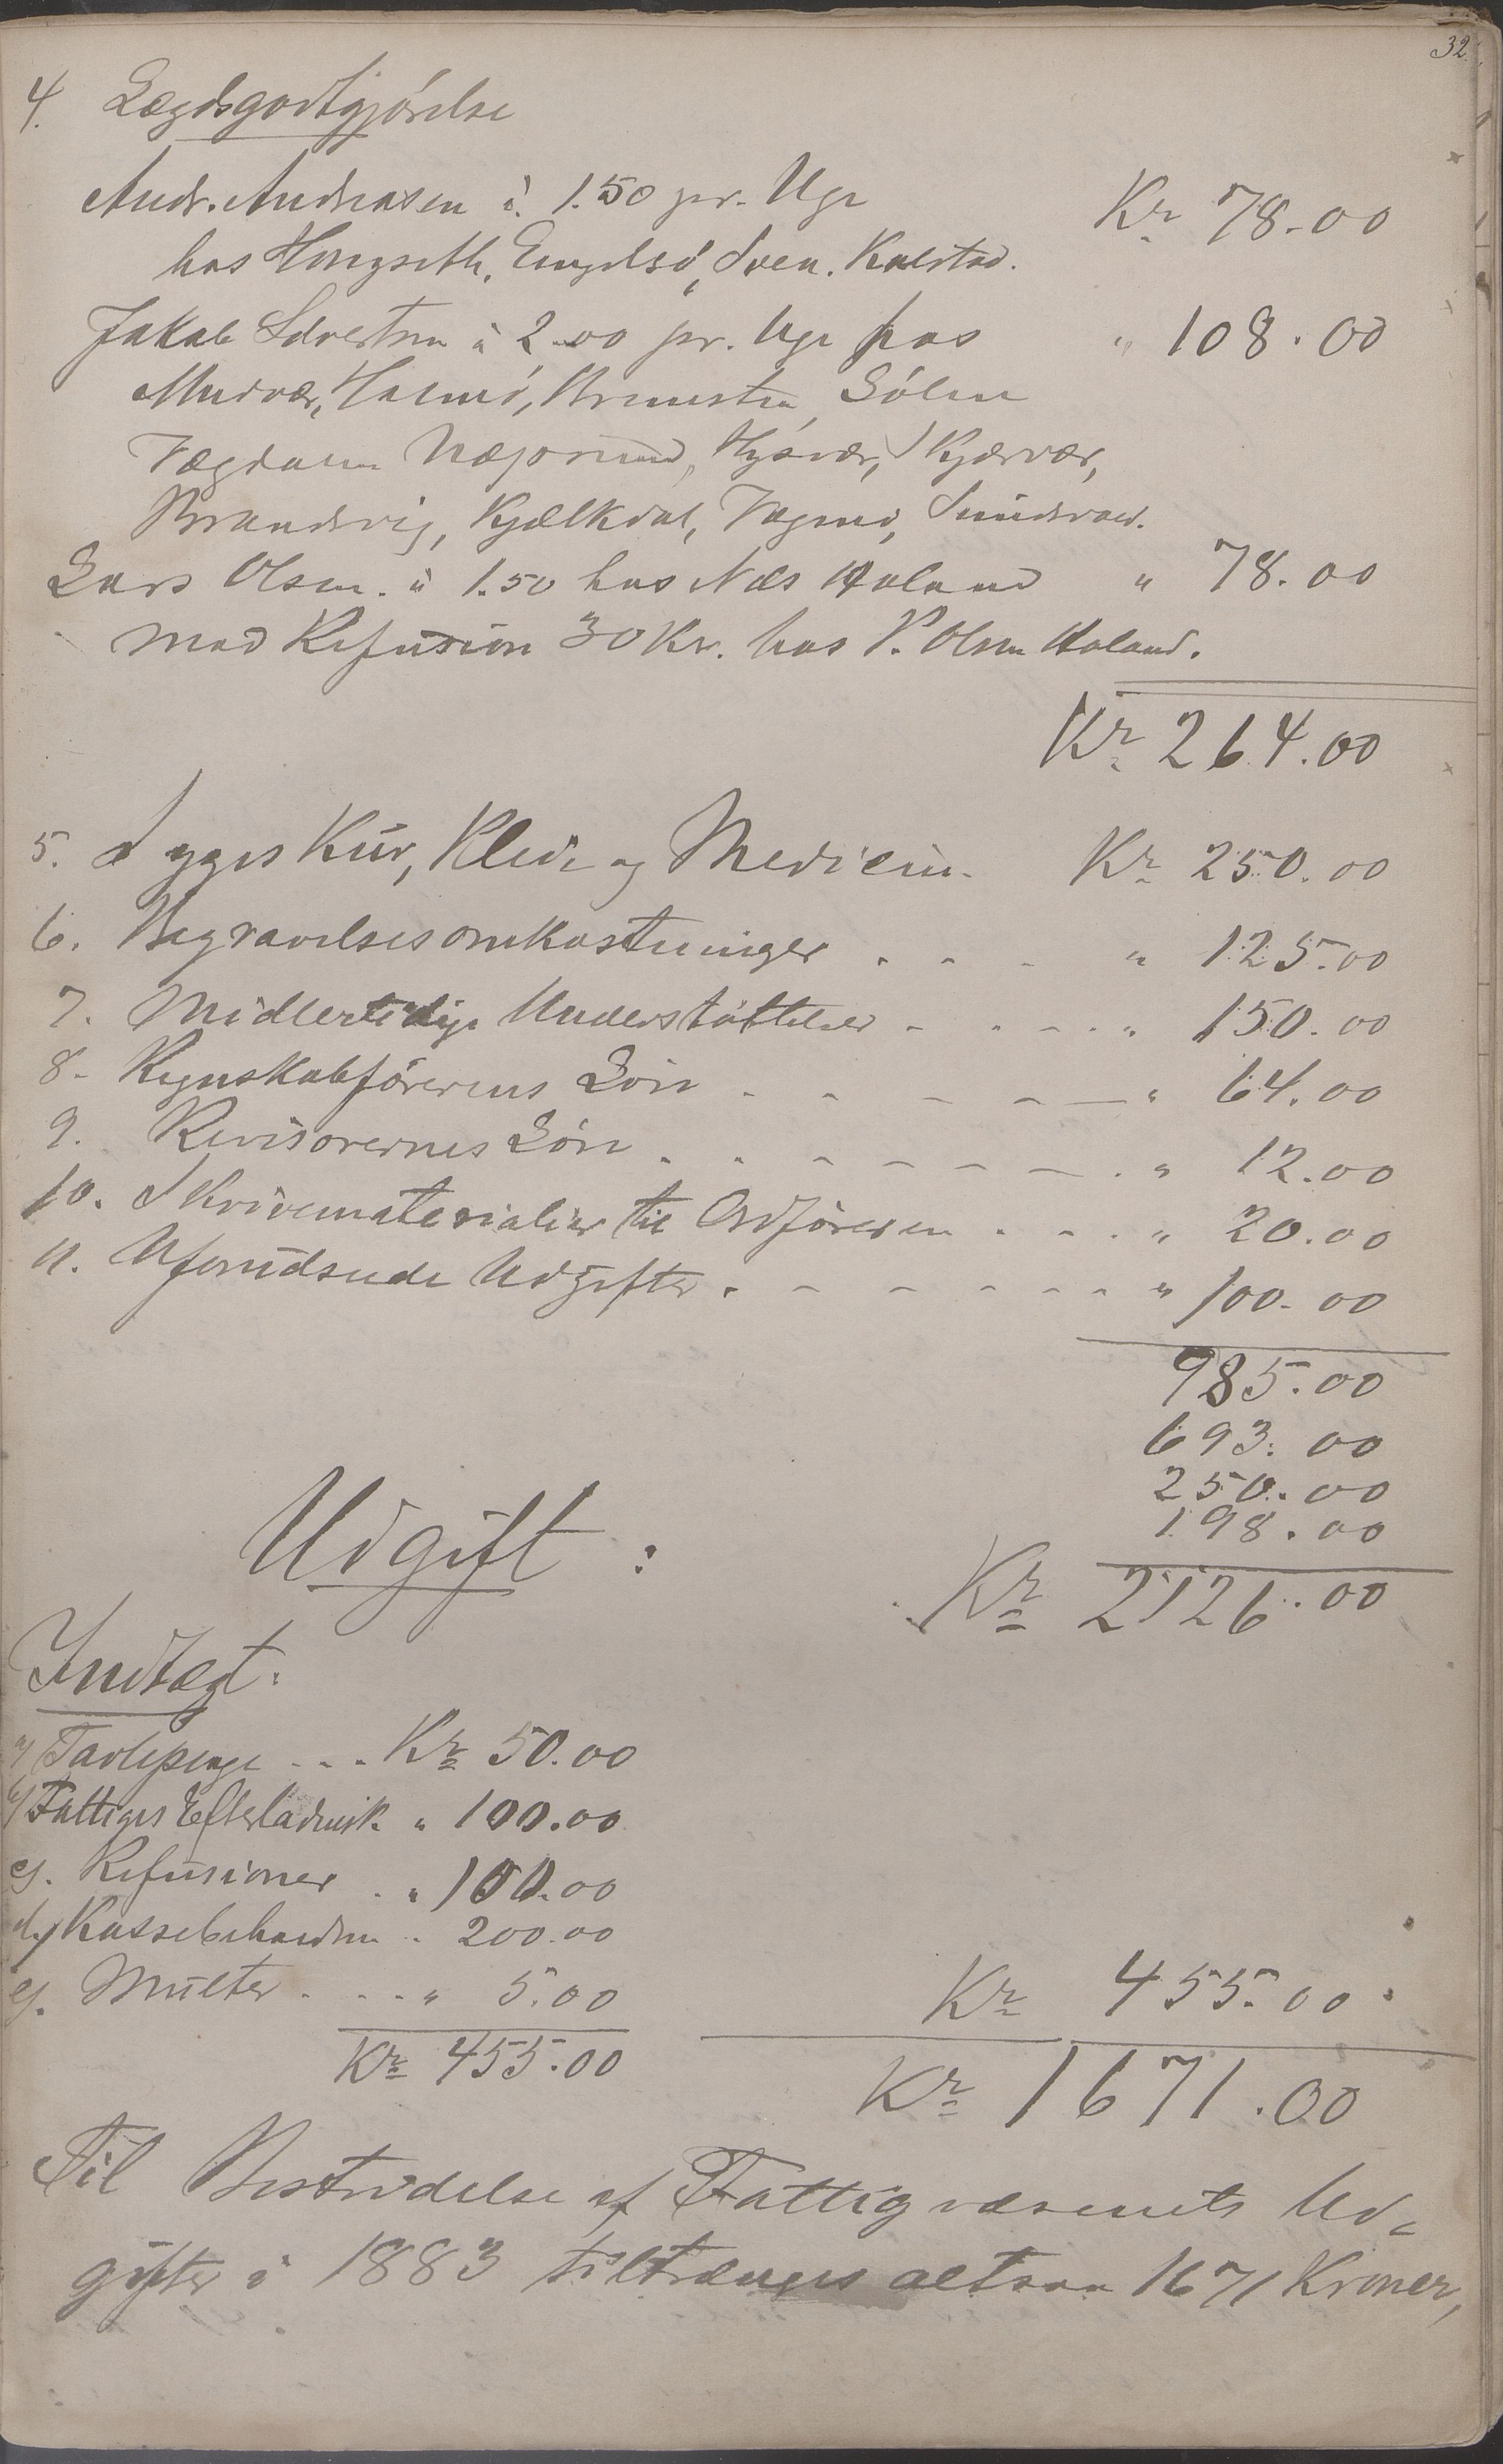 32
4. Lægdsgodtgjørelse
Andr. Andreasen à 1.50 pr. Uge Kr 78.00
hos Hongseth, Engelsø, Sven. Kalstad.
Jakob Sivertsen à 2.00 pr. Uge hos " 108.00
Mudvær, Halmø, Brimsten, Sølen
Vægdalen Næpsund, Hysvær, Skjærvær,
Brandsvig, Kjælkdal, Vegund, Sundsvold.
Lars Olsen. à 1.50 hos Næs Haland " 78.00
mod Refusion 30 Kr. hos P. Olsen Haland.
Kr 264.00
5. Syges Kur, Pleie og Medicin. Kr 250.00
6. Begravelsesomkostninger . - - " 125.00
7. Midlertidige Understøttelser - . - . " 150.00
8- Regnskabsførerens Løn . - - - — " 64.00
9. Revisorernes Løn . . - - - — . " 12.00
10. Skrivematerialier til Ordføreren . - . " 20.00
11. Uforudseede Udgifter . - - - - - " 100.00
985.00
693.00
250.00
198.00
Udgift : Kr 2126.00
Indtægt:
a) Tavlepenge - - . Kr 50.00
b) Fattiges Efterladensk. " 100.00
c). Refusioner . " 100.00
d.) Kassebeholdn . 200.00
e). Mulkter . . . . " 5.00 Kr 455.00
Kr 455.00
Kr 1671.00
Til Bestridelse af Fattigvæsenets Ud-
gifter i 1883 tiltrænges altsaa 1671 Kroner,